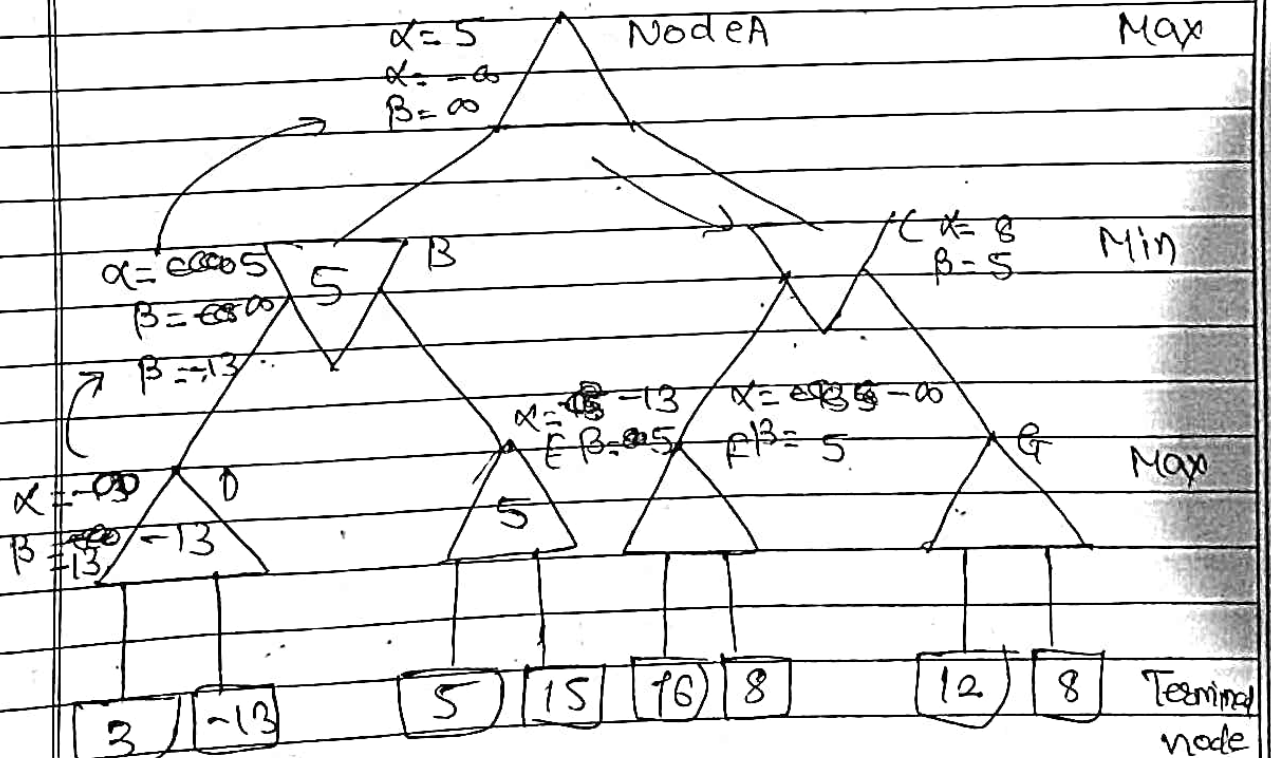 α = 5 NodeA Max
α = -∞
β = ∞
α = 5 5 B C α = 8 Min
β = ∞ β = 5
β = -13
α = -13 α = -∞
E β = 5 F β = 5 G Max
α = -∞ D
β = -13 -13 5
3 -13 5 15 8 12 8 Terminal
node